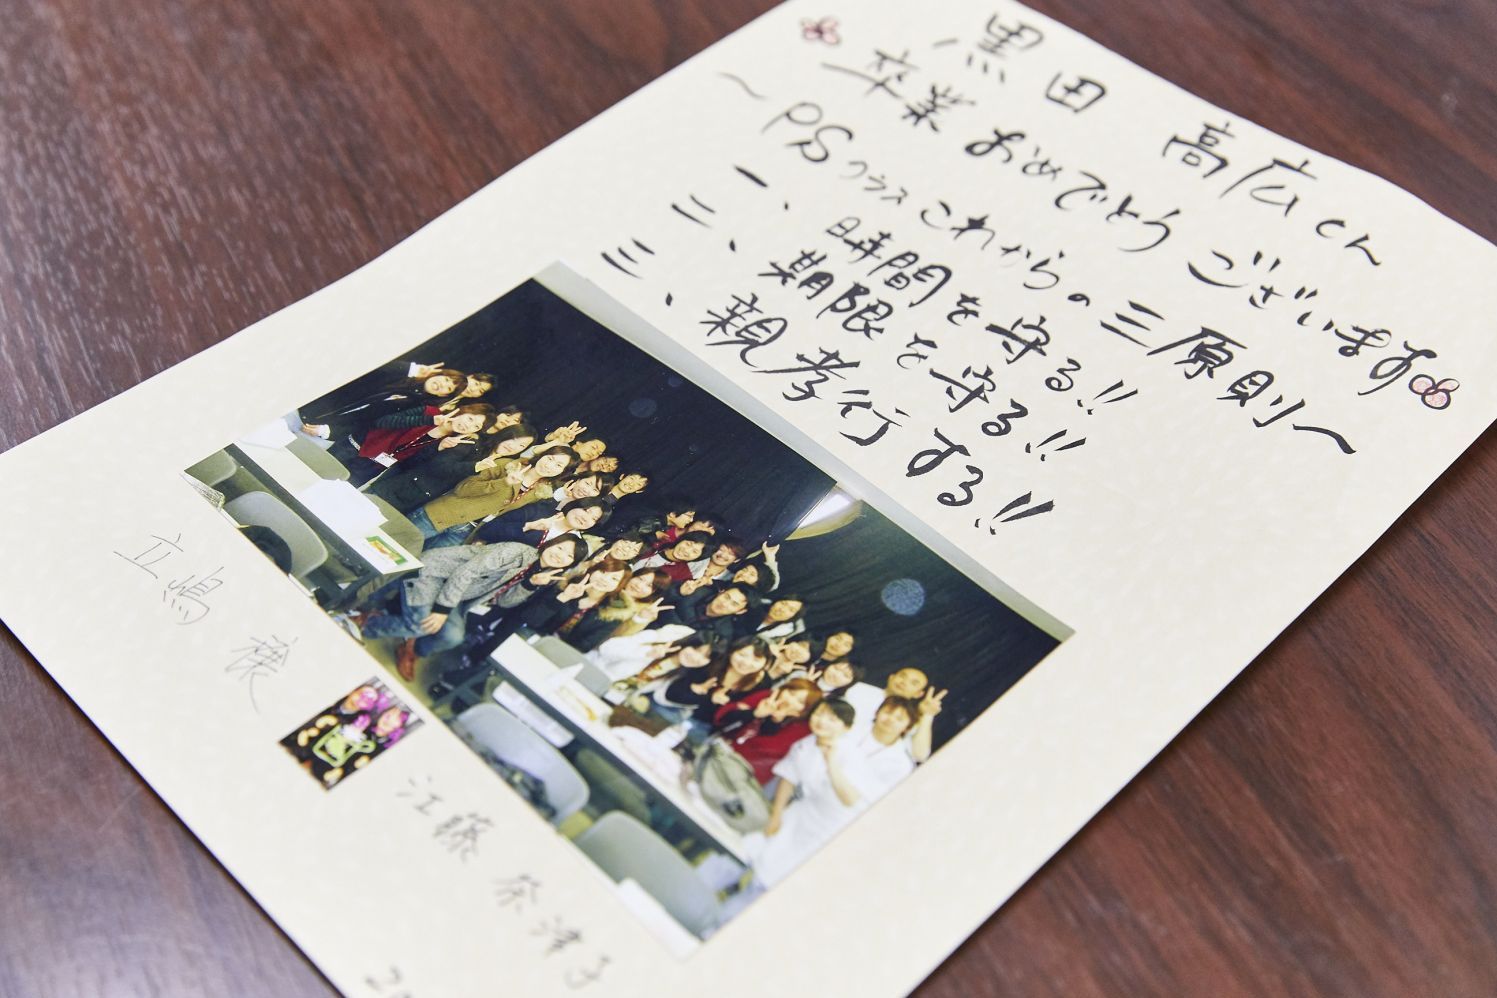 黒田 高広くん
卒業おめでとうございます
〜PSクラスこれからの三原則〜
一、時間を守る!!
二、期限を守る!!
三、親孝行する!!
立嶋 穣
江藤 奈津子